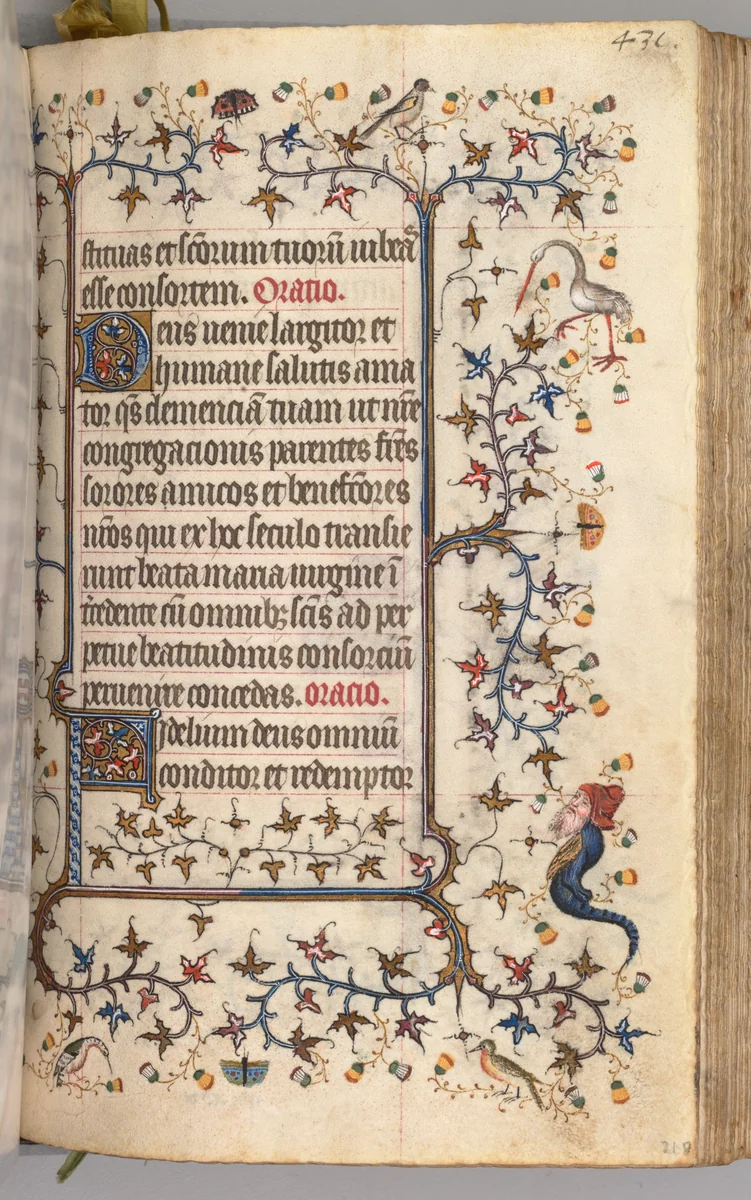 431.
stituas et sc̄orum tuorū iubeas
esse consortem. Oratio.
Deus uenie largitor et
humane salutis ama
tor q̄s clemenciā tuam ut nr̄e
congregacionis parentes fr̄es
sorores amicos et benefc̄ores
nr̄os qui ex hoc seculo transie
runt beata maria uirgine ī
t̄cedente cū omnibꝫ sc̄is ad per
petue beatitudinis consorciū
peruenire concedas. oracio.
Fidelium deus omniū
conditor et redemptor
318